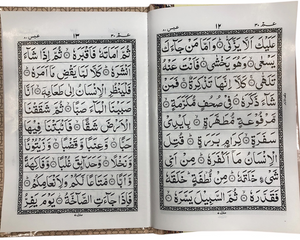 عم ٣٠ ١٢ عبس ٨٠
عَلَيْكَ اَلَّا يَزَّكّٰى ۝ وَاَمَّا مَنْ جَآءَكَ
يَسْعٰى ۝ وَهُوَ يَخْشٰى ۝ فَاَنْتَ عَنْهُ
تَلَهّٰى ۝ كَلَّآ اِنَّهَا تَذْكِرَةٌ ۝ فَمَنْ
شَآءَ ذَكَرَهٗ ۝ فِيْ صُحُفٍ مُّكَرَّمَةٍ ۝
مَّرْفُوْعَةٍ مُّطَهَّرَةٍ ۝ بِاَيْدِيْ
سَفَرَةٍ ۝ كِرَامٍ بَرَرَةٍ ۝ قُتِلَ
الْاِنْسَانُ مَآ اَكْفَرَهٗ ۝ مِنْ اَيِّ
شَيْءٍ خَلَقَهٗ ۝ مِنْ نُّطْفَةٍ خَلَقَهٗ
فَقَدَّرَهٗ ۝ ثُمَّ السَّبِيْلَ يَسَّرَهٗ ۝
عم ٣٠ ١٣ عبس ٨٠
ثُمَّ اَمَاتَهٗ فَاَقْبَرَهٗ ۝ ثُمَّ اِذَا شَآءَ
اَنْشَرَهٗ ۝ كَلَّا لَمَّا يَقْضِ مَآ اَمَرَهٗ ۝
فَلْيَنْظُرِ الْاِنْسَانُ اِلٰى طَعَامِهٖٓ ۝ اَنَّا
صَبَبْنَا الْمَآءَ صَبًّا ۝ ثُمَّ شَقَقْنَا
الْاَرْضَ شَقًّا ۝ فَاَنْۢبَتْنَا فِيْهَا حَبًّا
۝ وَّعِنَبًا وَّقَضْبًا ۝ وَّزَيْتُوْنًا
وَّنَخْلًا ۝ وَّحَدَآئِقَ غُلْبًا ۝ وَّفَاكِهَةً
وَّاَبًّا ۝ مَّتَاعًا لَّكُمْ وَلِاَنْعَامِكُمْ ۝
فَاِذَا جَآءَتِ الصَّآخَّةُ ۝ يَوْمَ يَفِرُّ